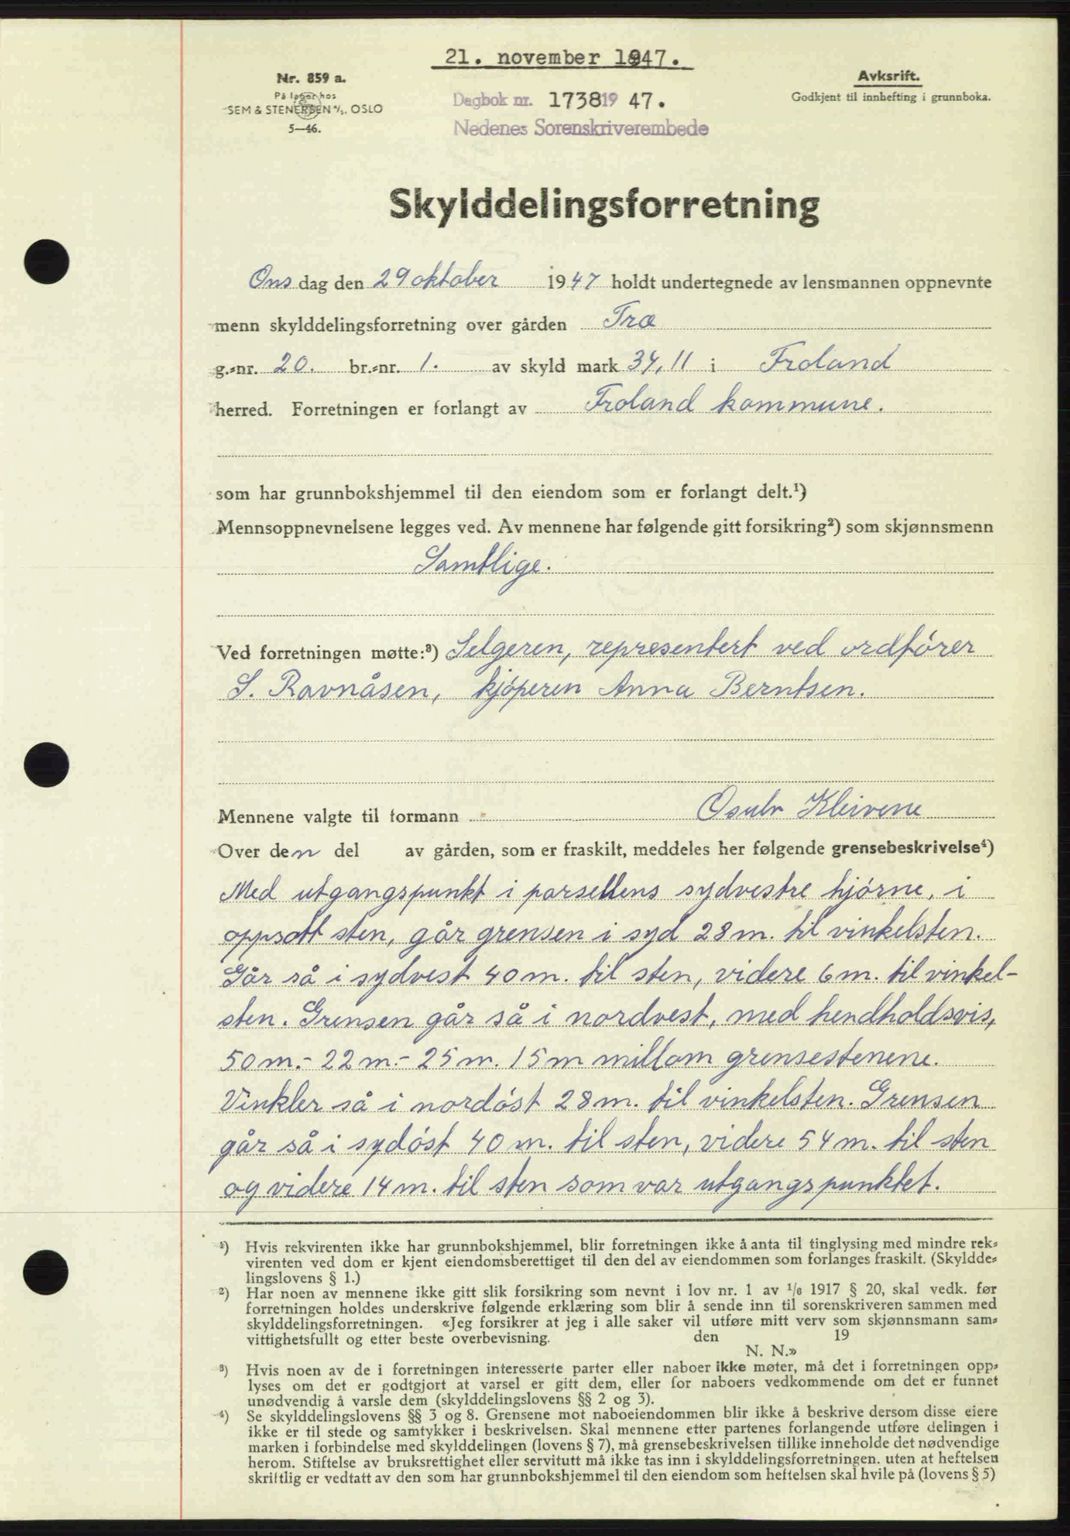 21. november 1947.
Nr. 859 a.
På lager hos
SEM & STENERSEN A/S, OSLO
5—46.
Dagbok nr. 1738 19 47.
Nedenes Sorenskriverembede
Avksrift.
Godkjent til innhefting i grunnboka.
Skylddelingsforretning
Ons dag den 29 oktober 1947 holdt undertegnede av lensmannen oppnevnte
menn skylddelingsforretning over gården Træ
g.-nr. 20. br.-nr. 1. av skyld mark 34,11 i Froland
herred. Forretningen er forlangt av Froland kommune.
som har grunnbokshjemmel til den eiendom som er forlangt delt.¹)
Mennsoppnevnelsene legges ved. Av mennene har følgende gitt forsikring²) som skjønnsmenn
Samtlige.
Ved forretningen møtte:³) Selgeren, representert ved ordfører
S. Ravnåsen, kjøperen Anna Berntsen.
Mennene valgte til formann Osulv Kleivene
Over den del av gården, som er fraskilt, meddeles her følgende grensebeskrivelse⁴)
Med utgangspunkt i parsellens sydvestre hjørne, i
oppsatt sten, går grensen i syd 28 m. til vinkelsten.
Går så i sydvest 40 m. til sten, videre 6 m. til vinkel-
sten. Grensen går så i nordvest, med hendholdsvis,
50 m. - 22 m. - 25 m. 15 m millom grensestenene.
Vinkler så i nordøst 28 m. til vinkelsten. Grensen
går så i sydøst 40 m. til sten, videre 54 m. til sten
og videre 14 m. til sten som var utgangspunktet.
¹) Hvis rekvirenten ikke har grunnbokshjemmel, blir forretningen ikke å anta til tinglysing med mindre rek-
virenten ved dom er kjent eiendomsberettiget til den del av eiendommen som forlanges fraskilt. (Skyldde-
lingslovens § 1.)
²) Har noen av mennene ikke gitt slik forsikring som nevnt i lov nr. 1 av 1/6 1917 § 20, skal vedk. før
forretningen holdes underskrive følgende erklæring som blir å sende inn til sorenskriveren sammen med
skylddelingsforretningen. «Jeg forsikrer at jeg i alle saker vil utføre mitt verv som skjønnsmann sam-
vittighetsfullt og etter beste overbevisning. den 19
N. N.»
³) Hvis noen av de i forretningen interesserte parter eller naboer ikke møter, må det i forretningen opp-
lyses om det er godtgjort at varsel er gitt dem, eller for naboers vedkommende om det er funnet
unødvendig å varsle dem (skylddelingslovens §§ 2 og 3).
⁴) Se skylddelingslovens §§ 3 og 8. Grensene mot naboeiendommen blir ikke å beskrive dersom disse eiere
ikke er til stede og samtykker i beskrivelsen. Skal mennene etter partenes forlangende utføre delingen i
marken i forbindelse med skylddelingen (lovens § 7), må grensebeskrivelsen tillike inneholde det nødvendige
herom. Stiftelse av bruksrettighet eller servitutt må ikke tas inn i skylddelingsforretningen, uten at heftelsen
skriftlig er vedtatt av den som har grunnbokshjemmel til den eiendom som heftelsen skal hvile på (lovens § 5)